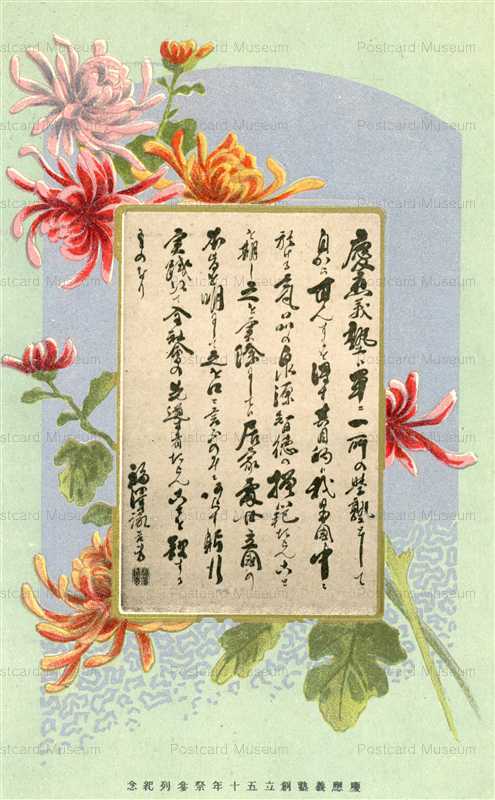 慶應義塾ハ單ニ一所の學塾として
自から甘んずるを得ず其目的ハ我日本國中ニ
於ける氣品の泉源智徳の模範たらんこと
を期し之を實際にしてハ居家處世立國の
本旨を明にして之を口に言ふのみにあらず躬行
實踐以て全社會の先導者たらんことを欲する
ものなり
福澤諭吉書
慶應義塾創立五十年祭參列紀念
Postcard Museum